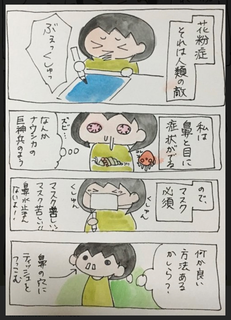 花粉症
それは人類の敵
ぶぇっくしゅっ
私は
鼻と目に
症状がでる
ズビー
なんか
ナウシカの
巨神兵のよう
ので、
マスク
必須
くしゅん
くしゅん
マスク苦しい
マスク苦しい!!
鼻水止まん
ないよー!
何か良い
方法ある
かしら?
鼻の穴に
ティッシュを
つっこむ